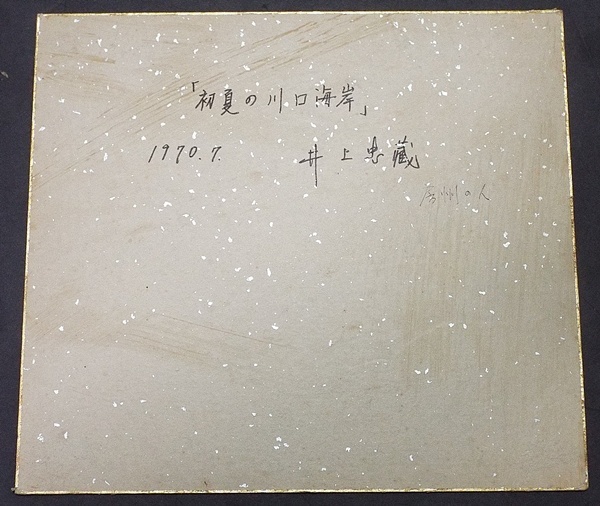 「初夏の川口海岸」
1970.7.
井上忠藏
房州の人